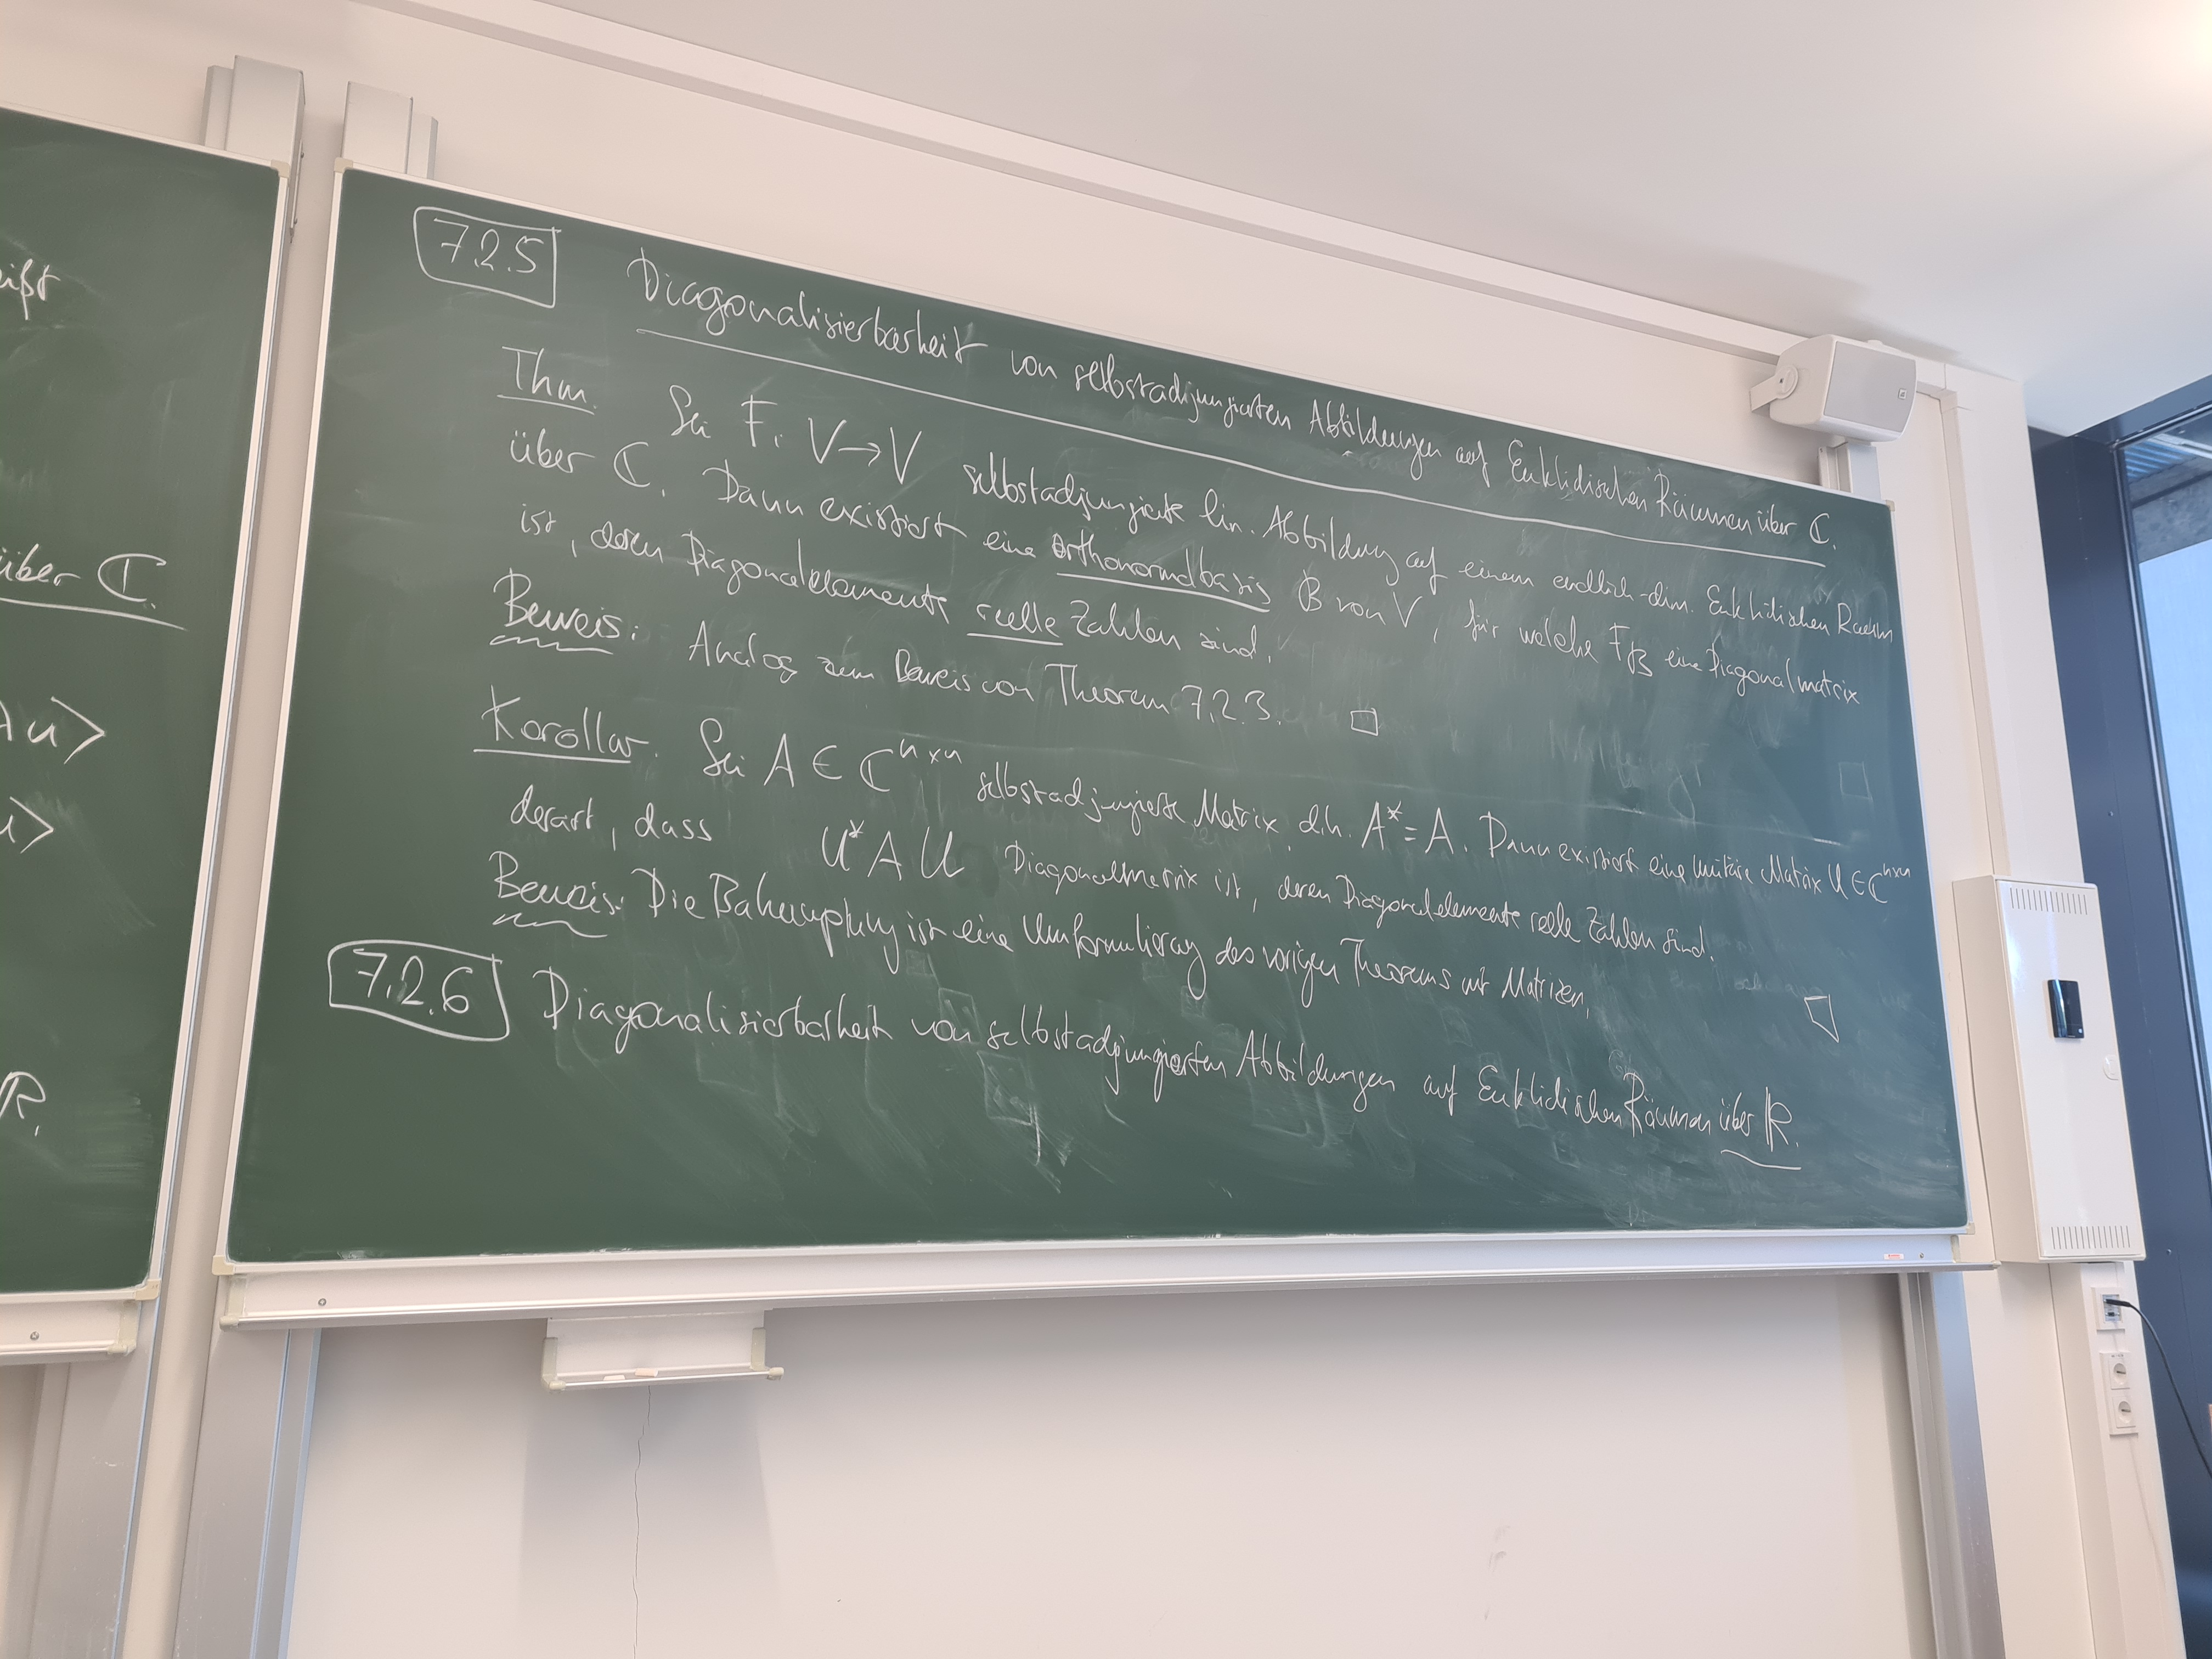 eißt
über ℂ.
Au>
u>
ℝ.
7.2.5 Diagonalisierbarkeit von selbstadjungierten Abbildungen auf Euklidischen Räumen über ℂ.
Thm. Sei F: V→V selbstadjungierte lin. Abbildung auf einem endlich-dim. Euklidischen Raum
über ℂ. Dann existiert eine Orthonormalbasis B von V, für welche F_B eine Diagonalmatrix
ist, deren Diagonalelemente reelle Zahlen sind.
Beweis: Analog zum Beweis von Theorem 7.2.3. □
Korollar. Sei A ∈ ℂ^{n×n} selbstadjungierte Matrix, d.h. A* = A. Dann existiert eine unitäre Matrix U ∈ ℂ^{n×n}
derart, dass U*AU Diagonalmatrix ist, deren Diagonalelemente reelle Zahlen sind.
Beweis: Die Bahauptung ist eine Umformulierung des vorigen Theorems mit Matrizen. □
7.2.6 Diagonalisierbarkeit von selbstadjungierten Abbildungen auf Euklidischen Räumen über ℝ.